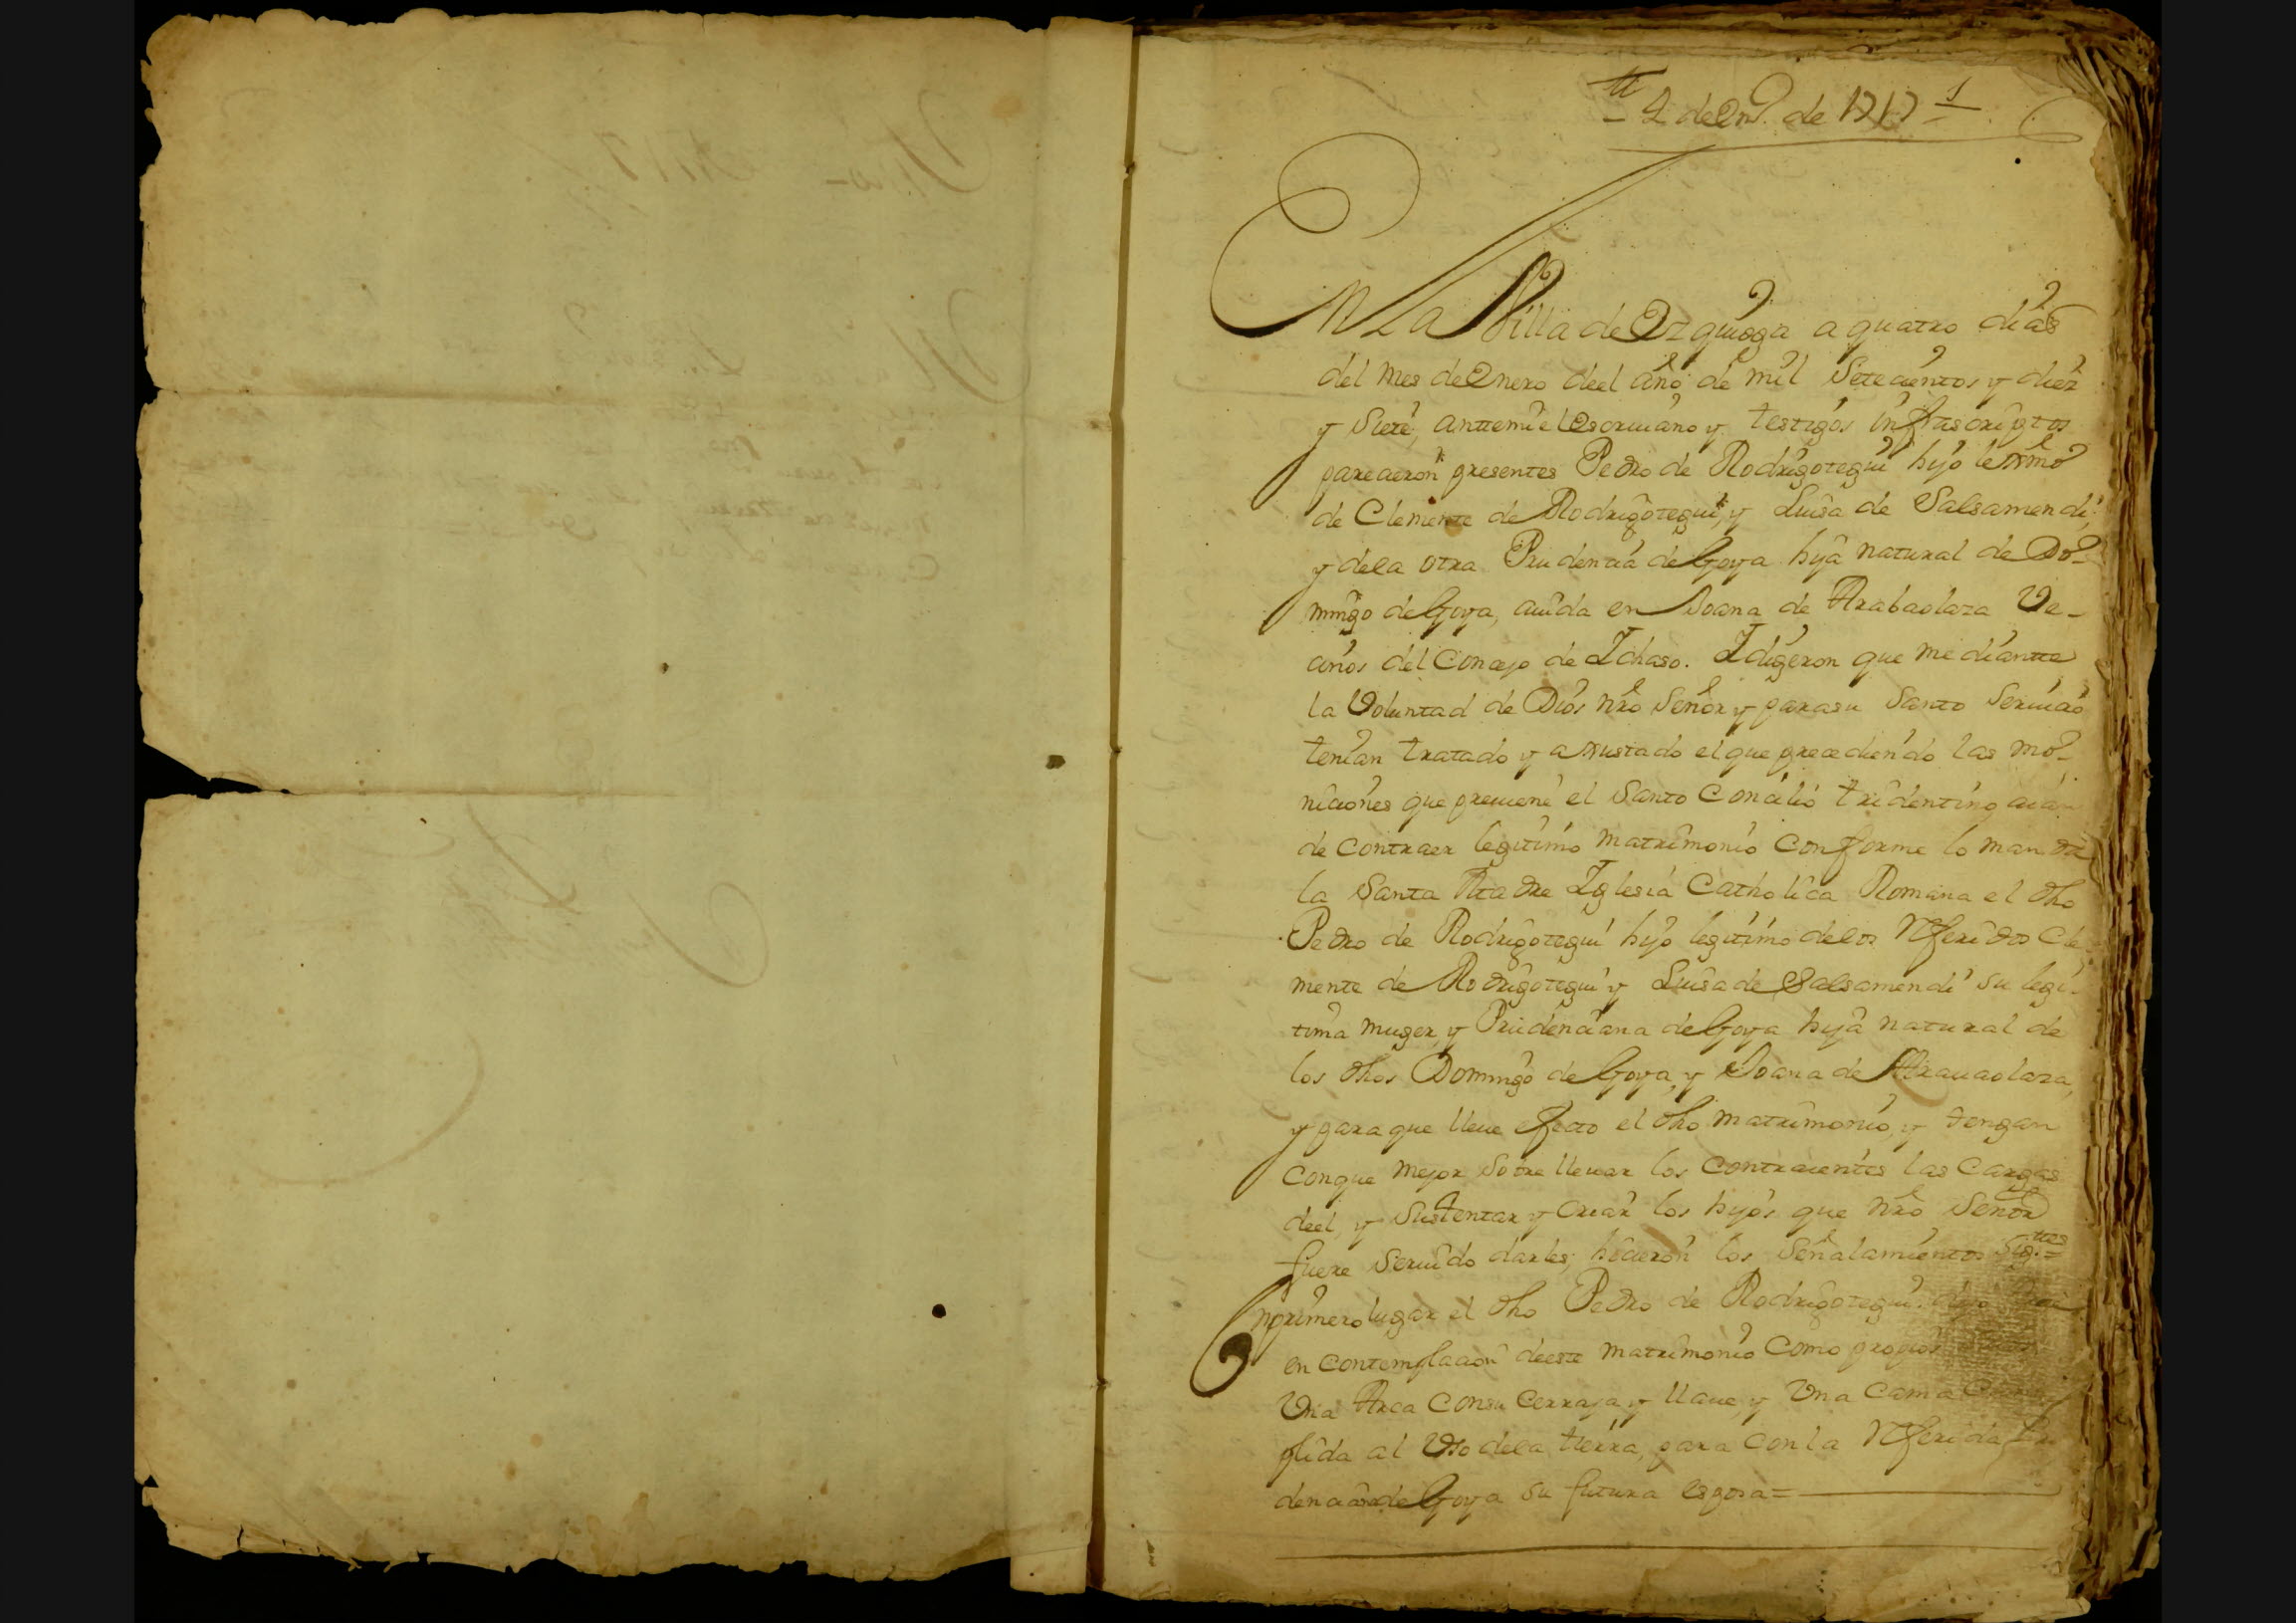 4 de En.º de 1717
1
En La Villa de Ezquioga a quatro dias
del mes de Enero deel año de mil Setecientos y diez
y Siete, antemi el Escriuano y testigos infrascriptos
parecieron presentes Pedro de Rodrigotegui hijo lexmo
de Clemente de Rodrigotegui, y Luisa de Salsamendi,
y dela otra Prudencia de Goya hija natural de Do-
mingo de Goya, auida en Joana de Arabaolaza Ve-
cinos del Concejo de Ichaso. I digeron que mediante
la Voluntad de Dios nro Señor y parasu Santo Seruicio
tenian tratado y axustado el que precediendo las mo-
niciones que preuiene el Santo Concilio tridentino
de contraer legitimo matrimonio conforme lo manda
la Santa Madre Iglesia Catholica Romana el dho
Pedro de Rodrigotegui hijo legitimo delos Referidos Cle
mente de Rodrigotegui y Luisa de Salsamendi su legi-
tima muger, y Prudenciana de Goya hija natural de
los dhos Domingo de Goya, y Joana de Arauaolaza,
y para que lleue efecto el dho matrimonio, y tengan
conque mejor Sobre lleuar los contraientes las Cargas
deel, y Sustentar y Criar los hijos que nro Señor
fuere Seruido darles, hicieron los Señalamientos Sig.ttes =
En primero lugar el dho Pedro de Rodrigotegui. dijo
en contemplacion deeste matrimonio Como propios
Vna Arca Consu Cerraja y llaue, y Vna Cama
plida al Vso dela tierra, para con la Referida
denciana de Goya su futura esposa =